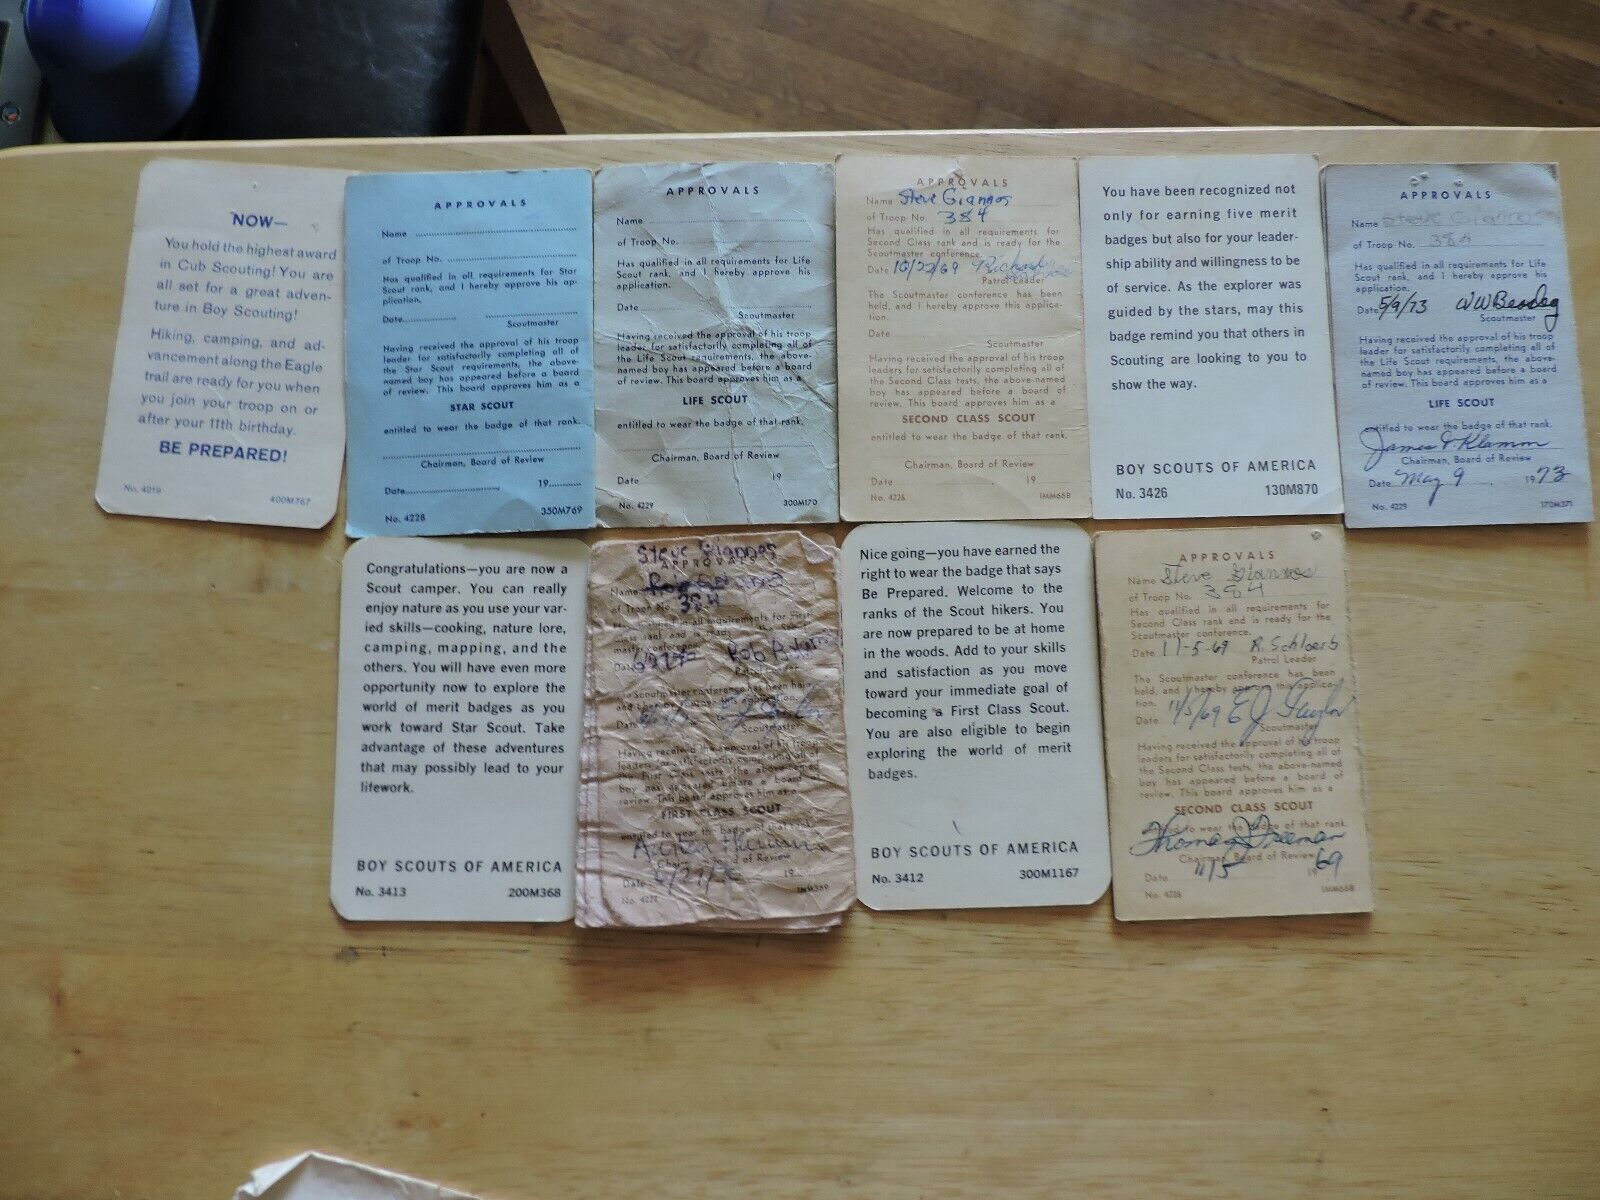 NOW—
You hold the highest award
in Cub Scouting! You are
all set for a great adven-
ture in Boy Scouting!
Hiking, camping, and ad-
vancement along the Eagle
trail are ready for you when
you join your troop on or
after your 11th birthday.
BE PREPARED!
No. 4219 400M767
APPROVALS
Name
of Troop No.
Has qualified in all requirements for Star
Scout rank, and I hereby approve his ap-
plication.
Date
Scoutmaster
Having received the approval of his troop
leader for satisfactorily completing all of
the Star Scout requirements, the above-
named boy has appeared before a board
of review. This board approves him as a
STAR SCOUT
entitled to wear the badge of that rank.
Chairman, Board of Review
Date 19
No. 4228 350M769
APPROVALS
Name
of Troop No.
Has qualified in all requirements for Life
Scout rank, and I hereby approve his
application.
Date
Scoutmaster
Having received the approval of his troop
leader for satisfactorily completing all of
the Life Scout requirements, the above-
named boy has appeared before a board
of review. This board approves him as a
LIFE SCOUT
entitled to wear the badge of that rank.
Chairman, Board of Review
Date 19
No. 4229 300M170
APPROVALS
Name Steve Giannos
of Troop No. 384
Has qualified in all requirements for
Second Class rank and is ready for the
Scoutmaster conference.
Date 10/22/69 Richard
Patrol Leader
The Scoutmaster conference has been
held, and I approve this applica-
tion.
Date
Scoutmaster
Having received the approval of his troop
leaders for satisfactorily completing all of
the Second Class tests, the above-named
boy has appeared before a board of
review. This board approves him as a
SECOND CLASS SCOUT
entitled to wear the badge of that rank.
Chairman, Board of Review
Date 19
No. 4226 1MM668
You have been recognized not
only for earning five merit
badges but also for your leader-
ship ability and willingness to be
of service. As the explorer was
guided by the stars, may this
badge remind you that others in
Scouting are looking to you to
show the way.
BOY SCOUTS OF AMERICA
No. 3426 130M870
APPROVALS
Name Steve Giannos
of Troop No. 384
Has qualified in all requirements for Life
Scout rank, and I hereby approve his
application.
Date 5/9/73 W W
Scoutmaster
Having received the approval of his troop
leader for satisfactorily completing all of
the Life Scout requirements, the above-
named boy has appeared before a board
of review. This board approves him as a
LIFE SCOUT
entitled to wear the badge of that rank.
James Klamm
Chairman, Board of Review
Date May 9 1973
No. 4229 170M371
Congratulations—you are now a
Scout camper. You can really
enjoy nature as you use your var-
ied skills—cooking, nature lore,
camping, mapping, and the
others. You will have even more
opportunity now to explore the
world of merit badges as you
work toward Star Scout. Take
advantage of these adventures
that may possibly lead to your
lifework.
BOY SCOUTS OF AMERICA
No. 3413 200M368
Steve Giannos
APPROVALS
Name
of Troop No. 384
Has qualified in all requirements for First
Class rank and is ready for the Scout-
master conference.
Date Rob
The Scoutmaster conference has been held,
and I hereby approve this application.
Date
Scoutmaster
Having received the approval of his troop
leaders for satisfactorily completing all of
the First Class tests, the above-named
boy has appeared before a board of
review. This board approves him as a
FIRST CLASS SCOUT
entitled to wear the badge of that rank.
Chairman, Board of Review
Date 19
No. 4227 1MM369
Nice going—you have earned the
right to wear the badge that says
Be Prepared. Welcome to the
ranks of the Scout hikers. You
are now prepared to be at home
in the woods. Add to your skills
and satisfaction as you move
toward your immediate goal of
becoming a First Class Scout.
You are also eligible to begin
exploring the world of merit
badges.
BOY SCOUTS OF AMERICA
No. 3412 300M1167
APPROVALS
Name Steve Giannos
of Troop No. 384
Has qualified in all requirements for
Second Class rank and is ready for the
Scoutmaster conference.
Date 11-5-69 R. Schloerb
Patrol Leader
The Scoutmaster conference has been
held, and I hereby approve this applica-
tion.
Date 11/5/69 E J Taylor
Scoutmaster
Having received the approval of his troop
leaders for satisfactorily completing all of
the Second Class tests, the above-named
boy has appeared before a board of
review. This board approves him as a
SECOND CLASS SCOUT
entitled to wear the badge of that rank.
Thomas Freeman
Chairman, Board of Review
Date 11/5 1969
No. 4226 1MM668